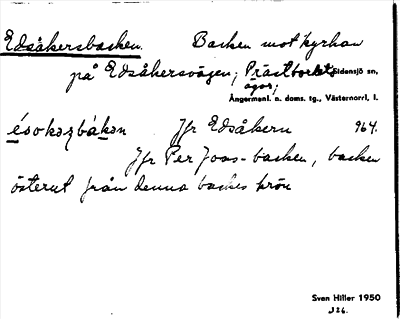 Edsåkersbacken. Backen mot kyrkan
på Edsåkersvägen; Prästbordet Sidensjö sn,
äger;
Ångermanl. n. doms. tg., Västernorrl. l.
Jfr Edsåkern 964.
Jfr Per Joas-backen, backen
österut från denna backes krön
Sven Hiller 1950